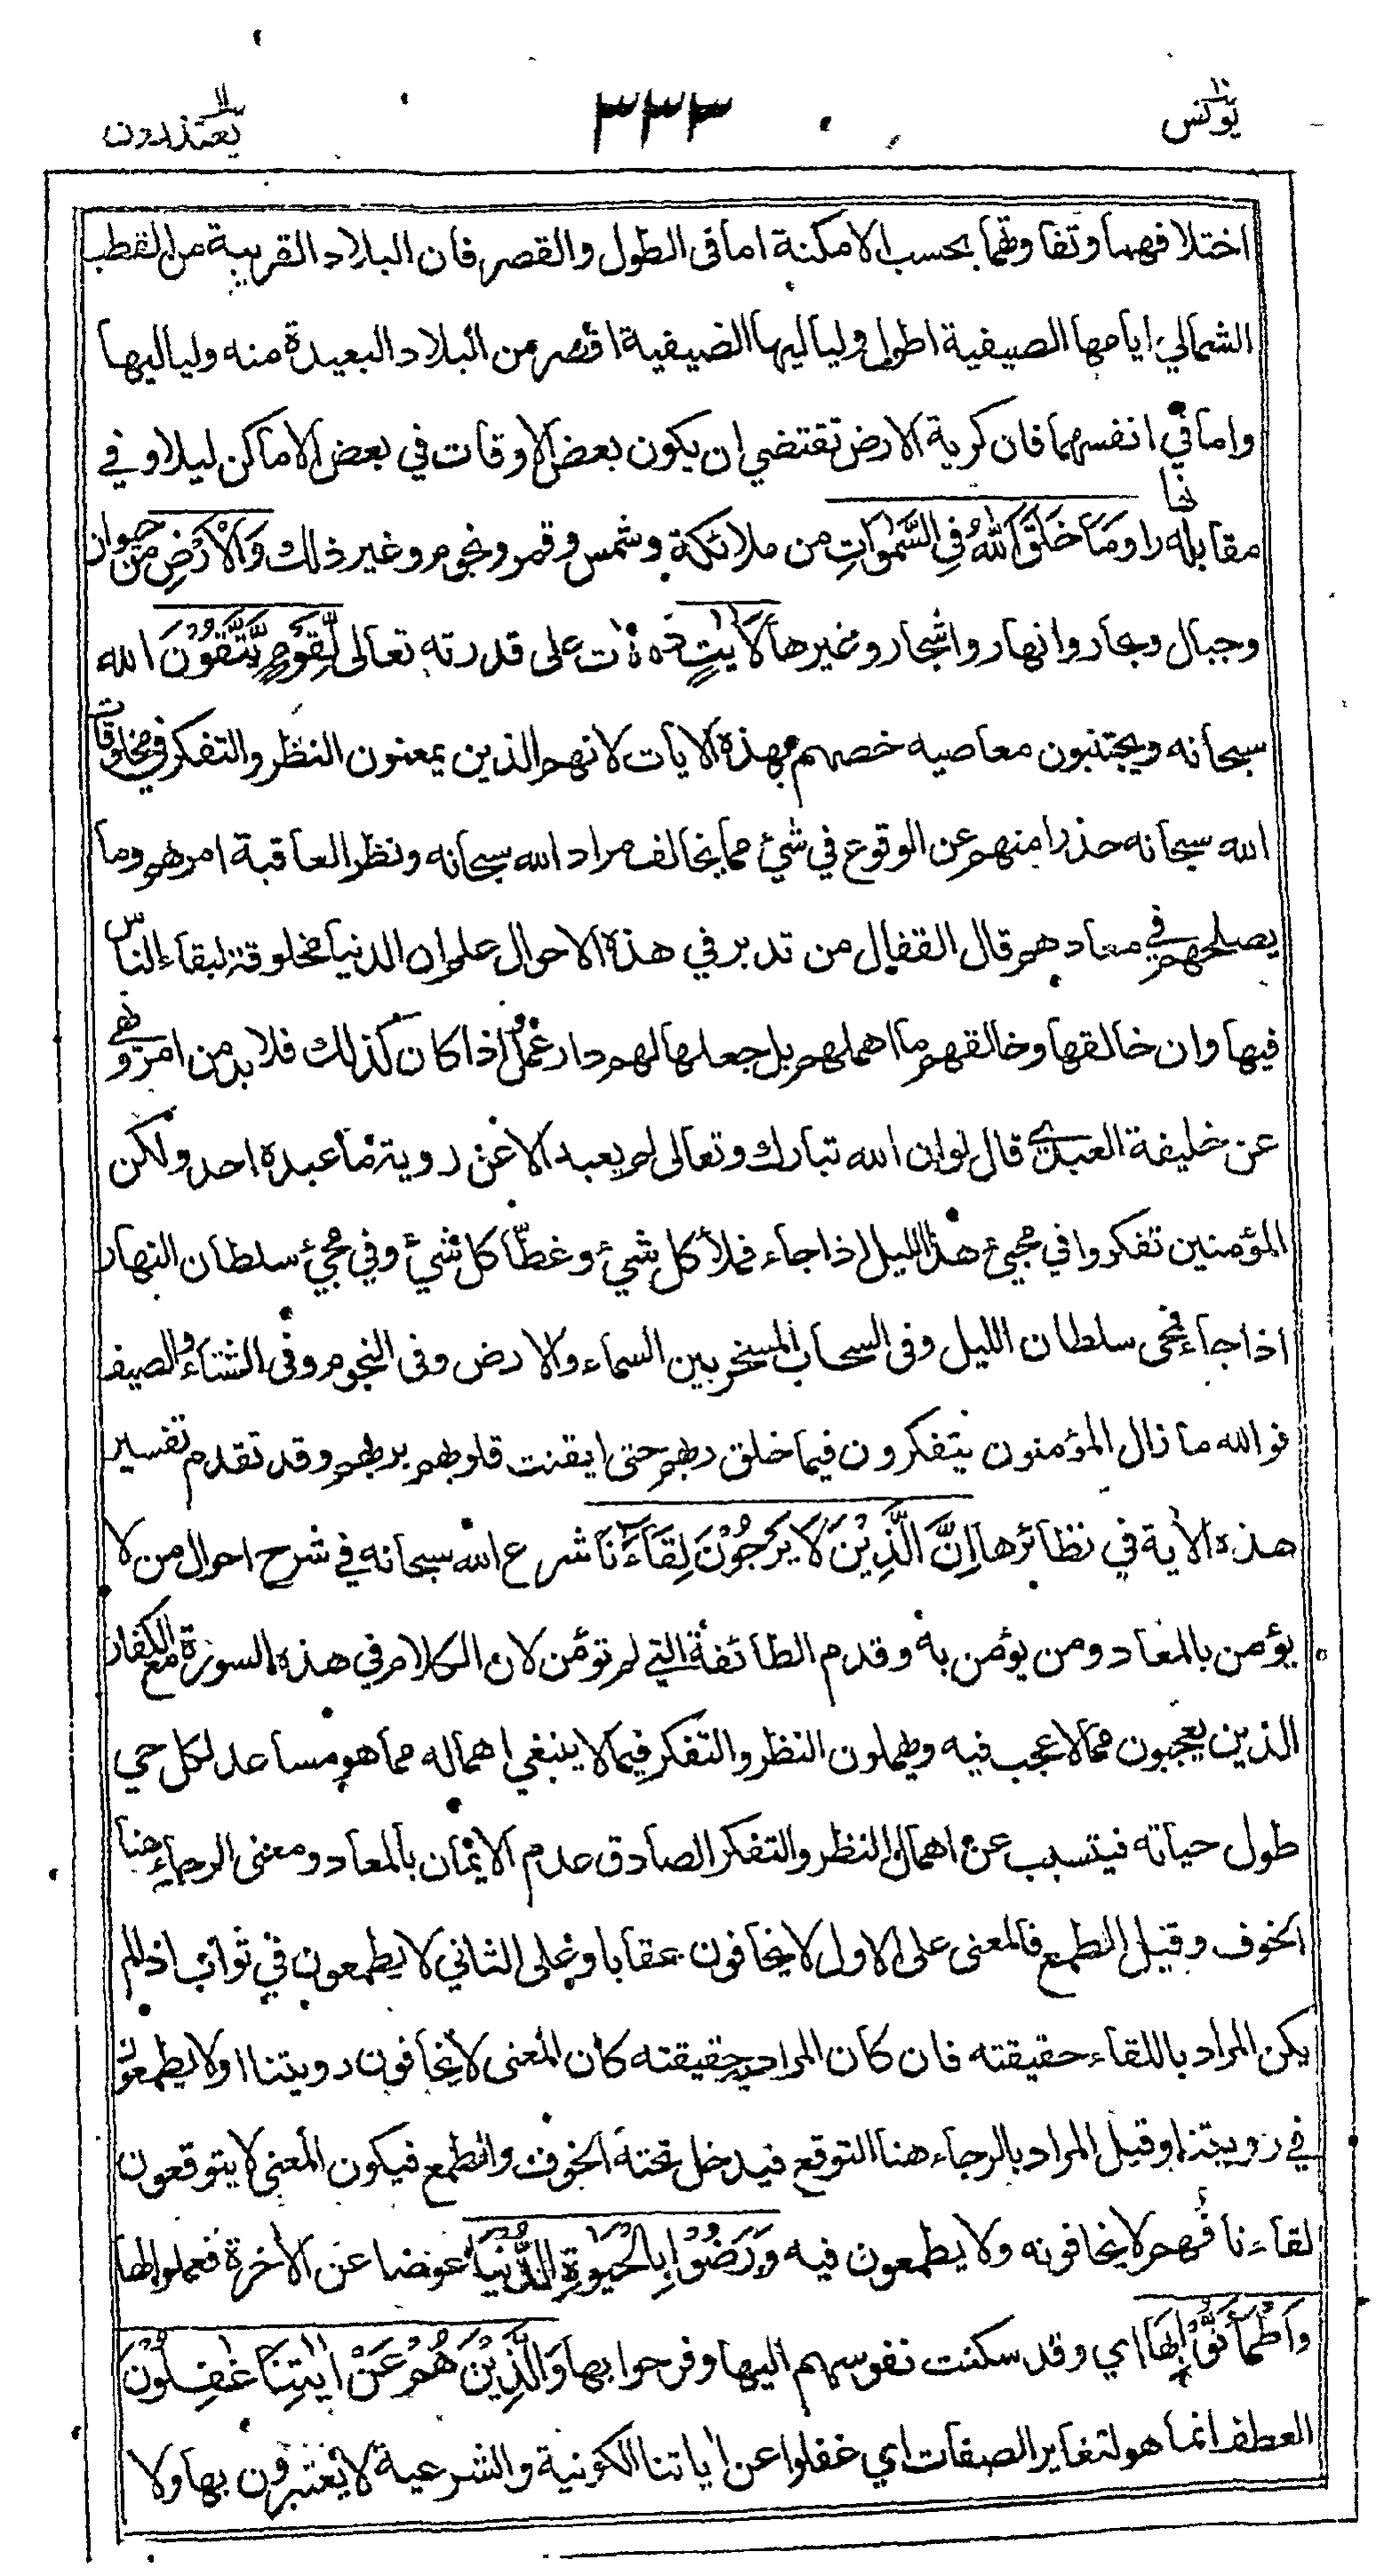 يونس ١٠
٣٣٣
يعتذرون ١١
اختلافهما وتفاوتهما بحسب الامكنة اما فى الطول والقصر فان البلاد القريبة من القطب
الشمالي ايامها الصيفية اطول ولياليها الصيفية اقصر من البلاد البعيدة منه ولياليها
واما في انفسهما فان كرية الارض تقتضي ان يكون بعض الاوقات في بعض الاماكن ليلا وفي
مقابله نهارا وَمَا خَلَقَ اللّٰهُ فِي السَّمٰوَاتِ من ملائكة وشمس وقمر ونجوم وغير ذلك وَالْاَرْضِ من حيوان
وجبال وبحار وانهار واشجار وغيرها لَاٰيٰتٍ دالات على قدرته تعالى لِّقَوْمٍ يَّتَّقُوْنَ الله
سبحانه ويجتنبون معاصيه خصهم بهذه الايات لانهم الذين يمعنون النظر والتفكر في مخلوقات
الله سبحانه حذرا منهم عن الوقوع في شيء مما يخالف مراد الله سبحانه ونظر العاقبة امرهم وما
يصلحهم في معادهم قال القفال من تدبر في هذه الاحوال علم ان الدنيا مخلوقة لبقاء الناس
فيها وان خالقها وخالقهم ما اهملهم بل جعلها لهم دار عمل واذا كان كذلك فلا بد من امر ونهي
عن خليفة العبدي قال لو ان الله تبارك وتعالى لم يعبد الا عن روية ما عبده احد ولكن
المؤمنين تفكروا في مجيء هذا الليل اذا جاء فملأ كل شيء وغطّا كل شيء وفي مجيء سلطان النهار
اذا جاء فمحى سلطان الليل وفى السحاب المسخر بين السماء والارض وفى النجوم وفى الشتاء والصيف
فوالله ما زال المؤمنون يتفكرون فيما خلق ربهم حتى ايقنت قلوبهم بربهم وقد تقدم تفسير
هذه الأية في نظائرها اِنَّ الَّذِيْنَ لَا يَرْجُوْنَ لِقَآءَنَا شرع الله سبحانه في شرح احوال من لا
يؤمن بالمعاد ومن يؤمن به وقدم الطائفة التي لم تؤمن لان الكلام في هذه السورة مع الكفار
الذين يعجبون مما لا عجب فيه ويهملون النظر والتفكر فيما لا ينبغي اهماله مما هو مساعد لكل حي
طول حياته فيتسبب عن اهمال النظر والتفكر الصادق عدم الايمان بالمعاد ومعنى الرجاء هنا
الخوف وقيل الطمع فالمعنى على الاول لا يخافون عقابا وعلى الثاني لا يطمعون في ثواب اذا لم
يكن المراد باللقاء حقيقته فان كان المراد به حقيقته كان المعنى لا يخافون رويتنا او لا يطمعون
في رويتنا وقيل المراد بالرجاء هنا التوقع فيدخل تحته الخوف والطمع فيكون المعنى لا يتوقعون
لقاءنا فهم لا يخافونه ولا يطمعون فيه وَرَضُوْا بِالْحَيٰوةِ الدُّنْيَا عوضا عن الأخرة فعملوا لها
وَاطْمَاَنُّوْا بِهَا اي وقد سكنت نفوسهم اليها وفرحوا بها وَالَّذِيْنَ هُمْ عَنْ اٰيٰتِنَا غٰفِلُوْنَ
العطف انما هو لتغاير الصفات اي غفلوا عن اياتنا الكونية والشرعية لا يعتبرون بها ولا